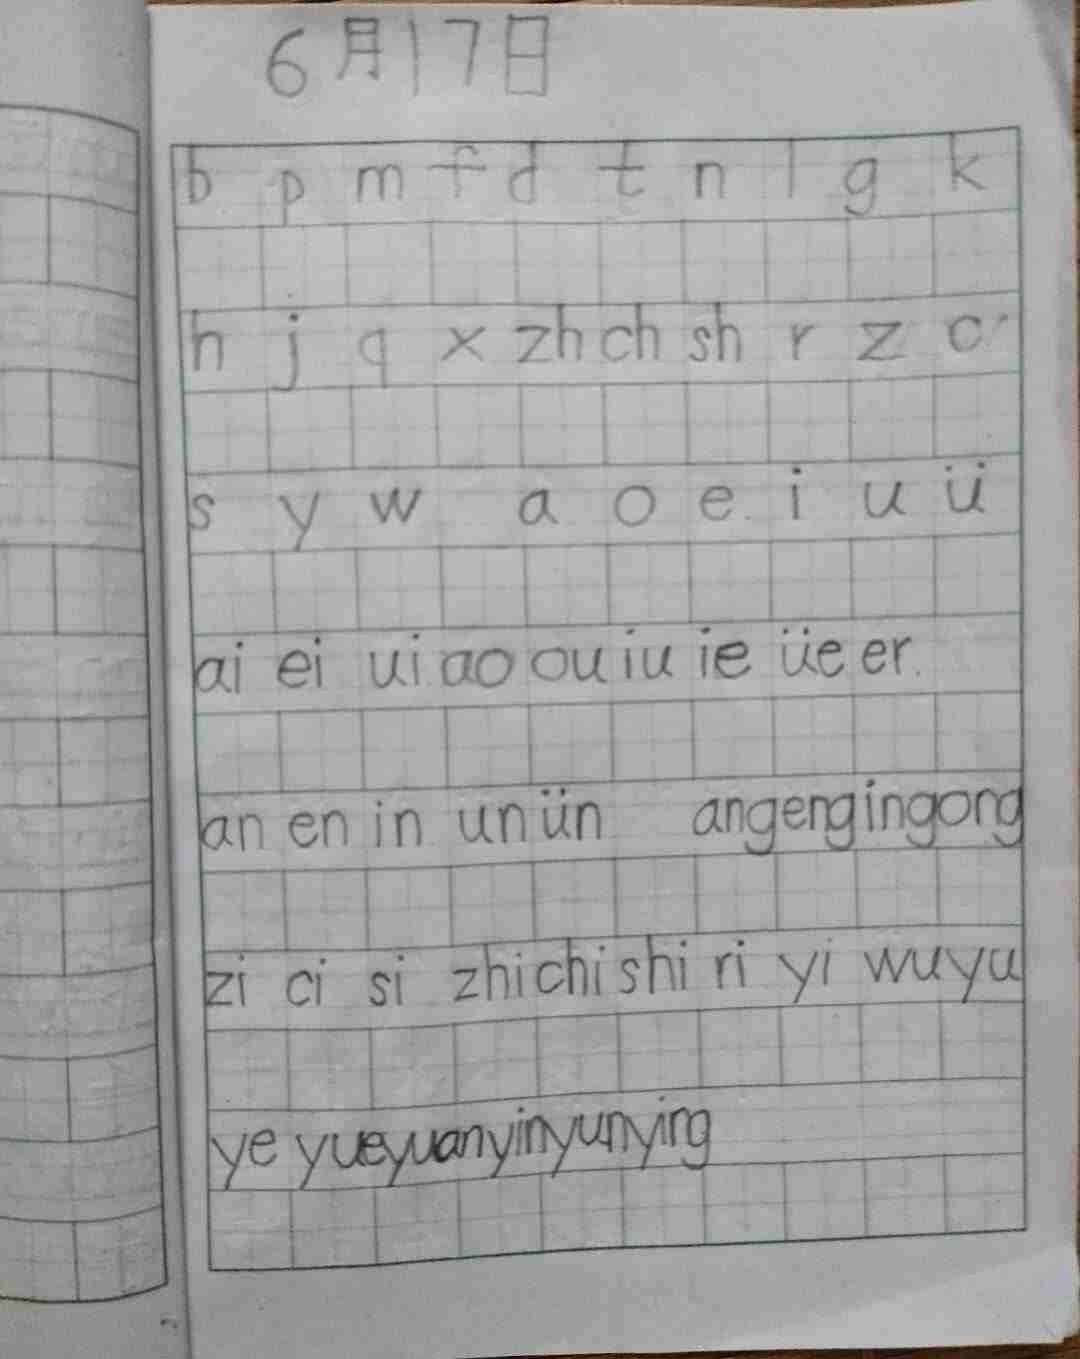 6月17日
b p m f d t n l g k
h j q x zh ch sh r z c
s y w a o e i u ü
ai ei ui ao ou iu ie üe er.
an en in un ün ang eng ing ong
zi ci si zhi chi shi ri yi wu yu
ye yue yuan yin yun ying